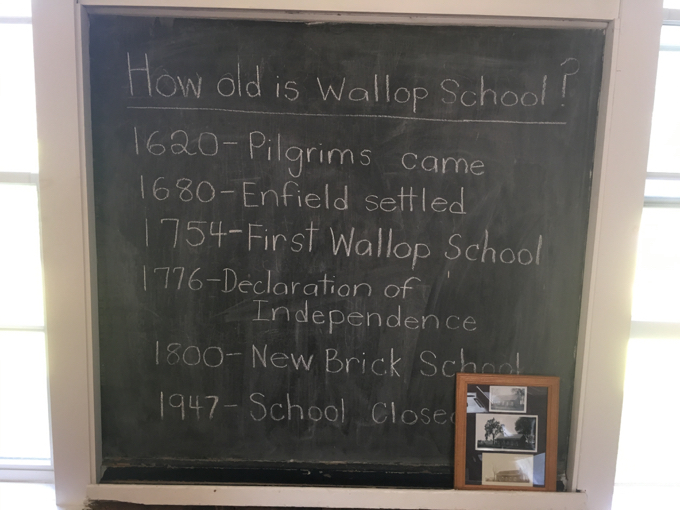 How old is Wallop School?
1620-Pilgrims came
1680-Enfield settled
1754-First Wallop School
1776-Declaration of
Independence
1800-New Brick School
1947-School Closed